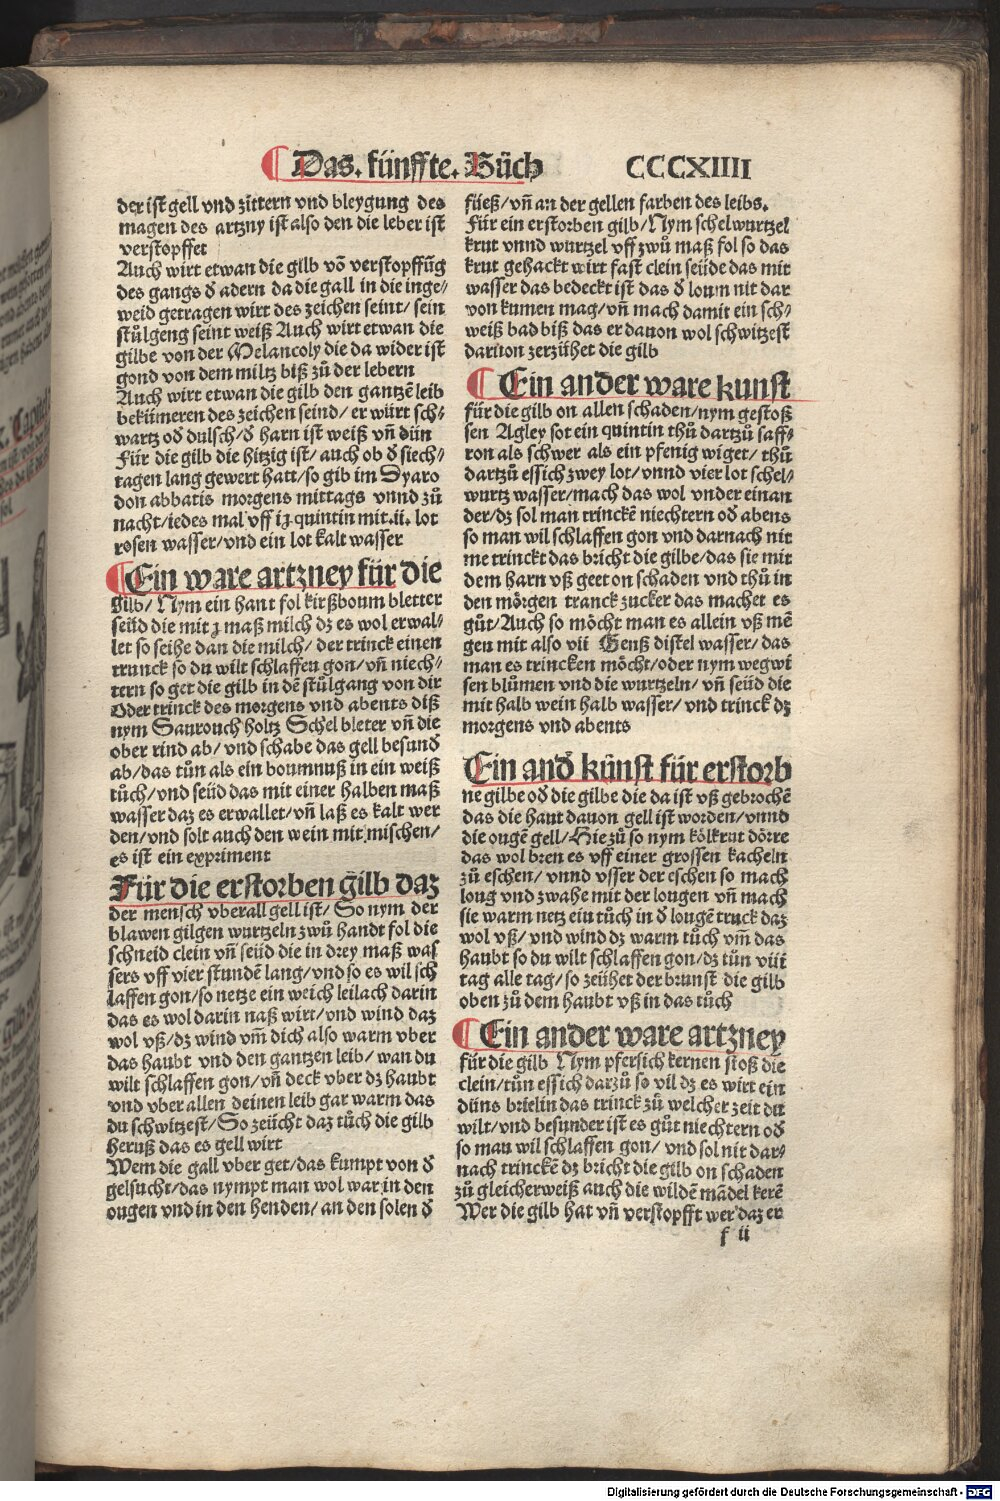 Das. fünffte. Bůch CCCXIIII
der ist gell vnd zittern vnd bleygung des
magen des artzny ist also den die leber ist
verstopffet
Auch wirt etwan die gilb võ verstopffũg
des gangs đ adern da die gall in die inge⸗
weid getragen wirt des zeichen seint/ sein
stůlgeng seint weiß Auch wirt etwan die
gilbe von der Melancoly die da wider ist
gond von dem miltz biß zů der lebern
Auch wirt etwan die gilb den gantzẽ leib
bekümeren des zeichen seind/ er würt sch⸗
wartz ođ dulsch/đ harn ist weiß vñ dün
Für die gilb die hitzig ist/ auch ob đ siech⸗
tagen lang gewert hatt/so gib im Dyaro
don abbatis morgens mittags vnnd zů
nacht/iedes mal vff iʒ quintin mit.ii. lot
rosen wasser/vnd ein lot kalt wasser
Ein ware artzney für die
gilb/ Nym ein hant fol kirßboum bletter
seüd die mit ʒ maß milch dz es wol erwal⸗
let so seihe dan die milch/ der trinck einen
trunck so du wilt schlaffen gon/vñ niech⸗
tern so get die gilb in dẽ stůlgang von dir
Oder trinck des morgens vnd abents diß
nym Saurouch holtz Schel bleter vñ die
ober rind ab/ vnd schabe das gell besunđ
ab/das tůn als ein boumnuß in ein weiß
tůch/vnd seüd das mit einer halben maß
wasser daz es erwallet/vñ laß es kalt wer
den/vnd solt auch den wein mit mischen/
es ist ein expriment
Für die erstorben gilb daz
der mensch vberall gell ist/ So nym der
blawen gilgen wurtzeln zwů handt fol die
schneid clein vñ seüd die in drey maß was
sers vff vier stundẽ lang/vnd so es wil sch
laffen gon/so netze ein weich leilach darin
das es wol darin naß wirt/vnd wind daz
wol vß/dz wind vm̃ dich also warm vber
das haubt vnd den gantzen leib/ wan du
wilt schlaffen gon/vñ deck vber dz haubt
vnd vber allen deinen leib gar warm das
du schwitzest/So zeücht daz tůch die gilb
heruß das es gell wirt
Wem die gall vber get/das kumpt von đ
gelsucht/das nympt man wol war in den
ougen vnd in den henden/ an den solen đ
füeß/vñ an der gellen farben des leibs.
Für ein erstorben gilb/Nym schelwurtzel
krut vnnd wurtzel vff zwů maß fol so das
krut gehackt wirt fast clein seüde das mit
wasser das bedeckt ist das đ loum nit dar
von kumen mag/vñ mach damit ein sch⸗
weiß bad biß das er dauon wol schwitzest
daruon zerzühet die gilb
Ein ander ware kunst
für die gilb on allen schaden/nym gestoß
sen Agley sot ein quintin thů dartzů saff⸗
ron als schwer als ein pfenig wiget/ thů
dartzů essich zwey lot/vnnd vier lot schel⸗
wurtz wasser/mach das wol vnder einan
der/dz sol man trinckẽ niechtern ođ abens
so man wil schlaffen gon vnd darnach nit
me trinckt das bricht die gilbe/das sie mit
dem harn vß geet on schaden vnd thů in
den mörgen tranck zucker das machet es
gůt/Auch so möcht man es allein vß mẽ
gen mit also vii Genß distel wasser/ das
man es trincken möcht/oder nym wegwi
sen blůmen vnd die wurtzeln/ vñ seüd die
mit halb wein halb wasser/ vnd trinck dz
morgens vnd abents
Ein anđ künst für erstorb
ne gilbe ođ die gilbe die da ist vß gebrochẽ
das die haut dauon gell ist worden/vnnd
die ougẽ gell/Hie zů so nym kölkrut dörre
das wol bren es vff einer grossen kacheln
zů eschen/ vnnd vsser der eschen so mach
loug vnd zwahe mit der lougen vñ mach
sie warm netz ein tůch in đ lougẽ truck daz
wol vß/ vnd wind dz warm tůch vm̃ das
haubt so du wilt schlaffen gon/dz tůn viii
tag alle tag/so zeühet der brunst die gilb
oben zů dem haubt vß in das tůch
Ein ander ware artzney
für die gilb Nym pfersich kernen stoß die
clein/tůn essich darzů so vil dz es wirt ein
düns brielin das trinck zů welcher zeit du
wilt/vnd besunder ist es gůt niechtern ođ
so man wil schlaffen gon/ vnd sol nit dar⸗
nach trinckẽ dz bricht die gilb on schaden
zů gleicherweiß auch die wildẽ mãdel kerẽ
Wer die gilb hat vñ verstopfft wer daz er
f ii
Digitalisierung gefördert durch die Deutsche Forschungsgemeinschaft - DFG